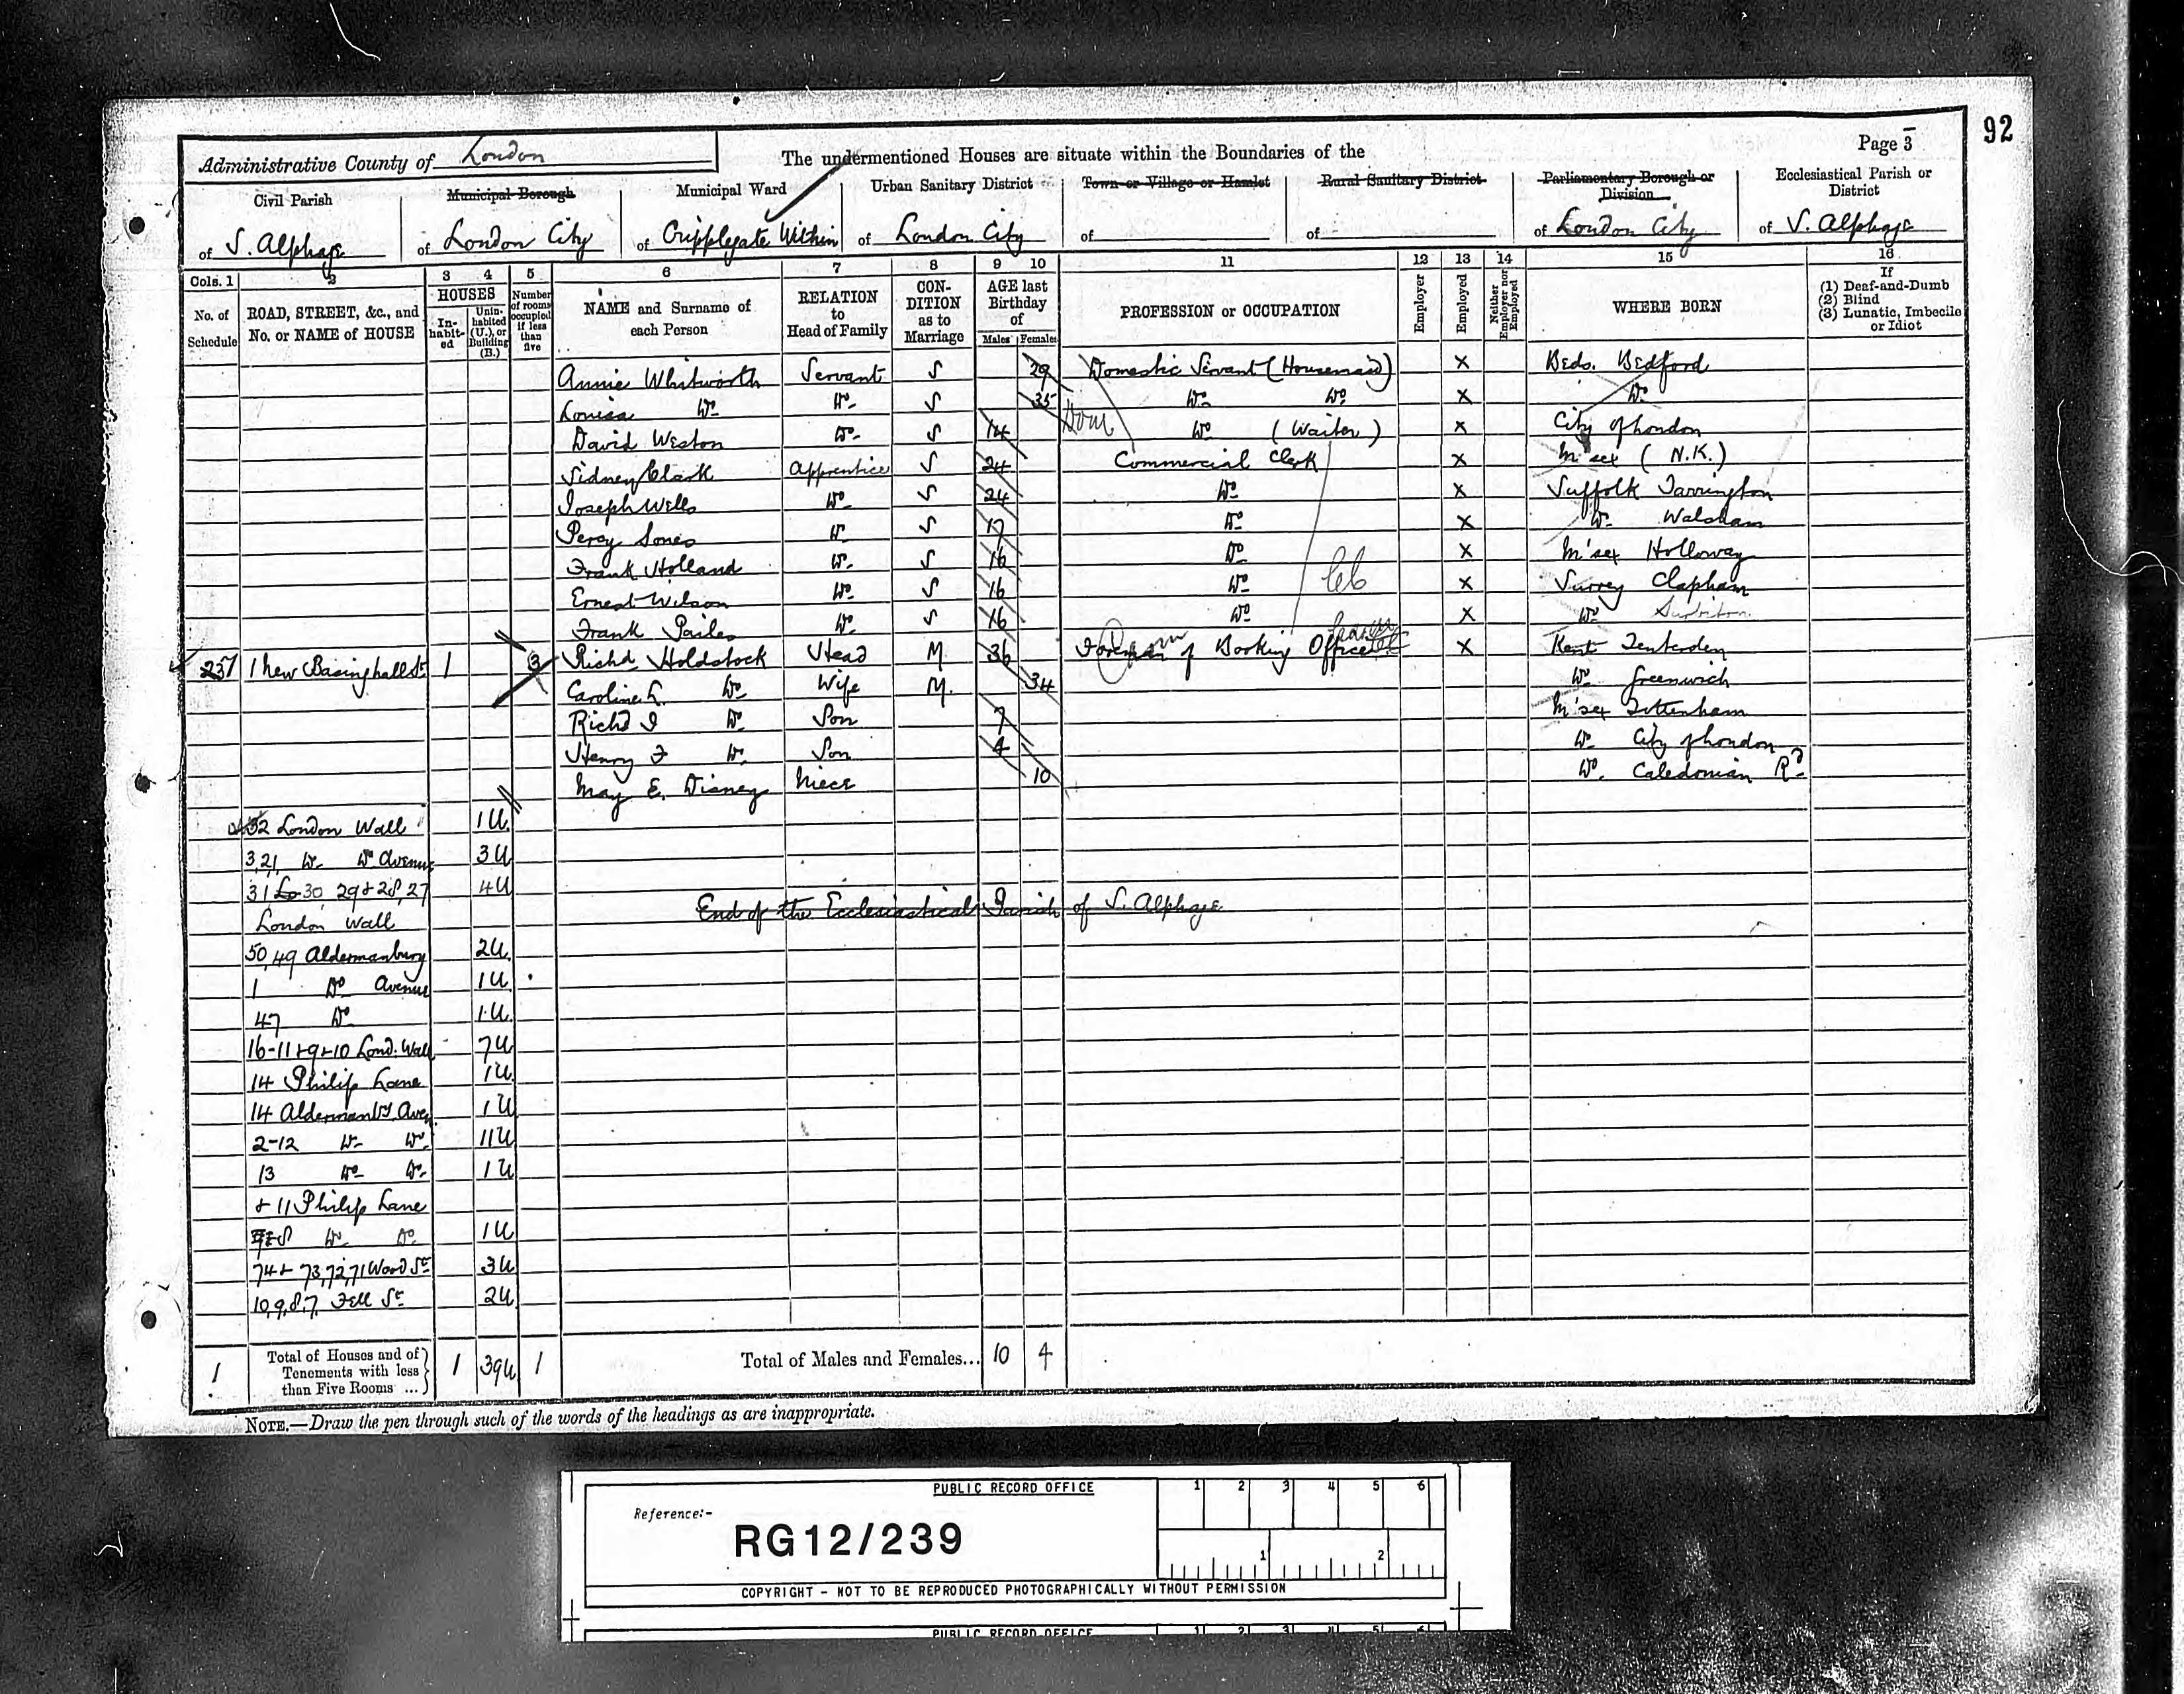 92
Page 3
Administrative County of London
The undermentioned Houses are situate within the Boundaries of the
Civil Parish of S. Alphage
Municipal Borough of London City
Municipal Ward of Cripplegate Within
Urban Sanitary District of London City
Town or Village or Hamlet of
Rural Sanitary District of
Parliamentary Borough or Division of London City
Ecclesiastical Parish or District of S. Alphage
Cols. 1 2 3 4 5 6 7 8 9 10 11 12 13 14 15 16
No. of Schedule
ROAD, STREET, &c., and No. or NAME of HOUSE
HOUSES
In-habit-ed
Unin-habited (U.), or Building (B.)
Number of rooms occupied if less than five
NAME and Surname of each Person
RELATION to Head of Family
CON-DITION as to Marriage
AGE last Birthday of
Males Females
PROFESSION or OCCUPATION
Employer
Employed
Neither Employer nor Employed
WHERE BORN
If
(1) Deaf-and-Dumb
(2) Blind
(3) Lunatic, Imbecile or Idiot
Annie Whitworth Servant S 29 Domestic Servant (Housemaid) X Beds. Bedford
Louisa Do Do S 35 Do Do X Do
David Weston Do S 14 Dom Do (Waiter) X City of London
Sidney Clark Apprentice S 24 Commercial Clerk X M'sex (N.K.)
Joseph Wells Do S 24 Do X Suffolk
Percy Do S 17 Do X Do Walsham
Frank Holland Do S 16 Do X M'sex Holloway
Ernest Wilson Do S 16 Do X Surrey Clapham
Frank Do S 16 Do X Do Surbiton
237 1 New Basinghall St 1 3 Richd Holdstock Head M 36 Foreman of Booking Office X Kent Tenterden
Caroline L. Do Wife M. 34 Do Greenwich
Richd J Do Son 7 M'sex Tottenham
Henry F Do Son 4 Do City of London
May E. Disney Niece 10 Do. Caledonian Rd
32 London Wall 1U
3,21, Do Do Avenue 3U
31, 30, 29 & 28, 27 4U
London Wall
End of the Ecclesiastical Parish of S. Alphage
50,49 Aldermanbury 2U
1 Do Avenue 1U
47 Do 1U
16-11 + 9 + 10 Lond. Wall 7U
14 Philip Lane 1U
14 Aldermanby Ave. 1U
2-12 Do Do 11U
13 Do Do 1U
+ 11 Philip Lane
8 Do Do 1U
74 + 73,72,71 Wood St 3U
10,9,8,7, Fell St 2U
1 Total of Houses and of Tenements with less than Five Rooms ... 1 39U 1
Total of Males and Females... 10 4
NOTE.—Draw the pen through such of the words of the headings as are inappropriate.
PUBLIC RECORD OFFICE 1 2 3 4 5 6
Reference:-
RG12/239
1 2
COPYRIGHT - NOT TO BE REPRODUCED PHOTOGRAPHICALLY WITHOUT PERMISSION
PUBLIC RECORD OFFICE 1 2 3 4 5 6